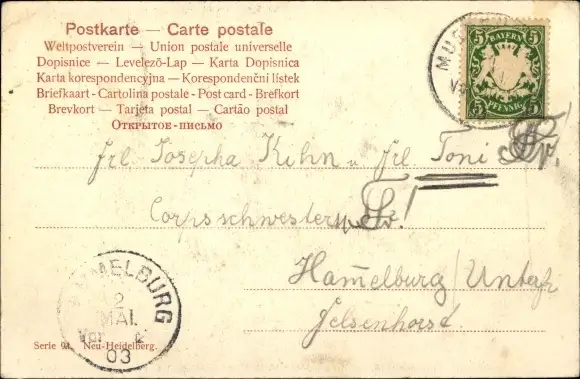 Postkarte — Carte postale
Weltpostverein — Union postale universelle
Dopisnice — Levelező-Lap — Karta Dopisnica
Karta korespondencyjna — Korespondenční lístek
Briefkaart - Cartolina postale - Post card - Brefkort
Brevkort — Tarjeta postal — Cartão postal
Открытое-письмо
5 BAYERN 5
5 PFENNIG 5
Frl. Josepha Kihn u. Frl. Toni
Corpsschwestern
Ham̅elburg/Unterfr.
Felsenhorst
HAMMELBURG
2
MAI.
Vor
03
Serie 91. Neu-Heidelberg.